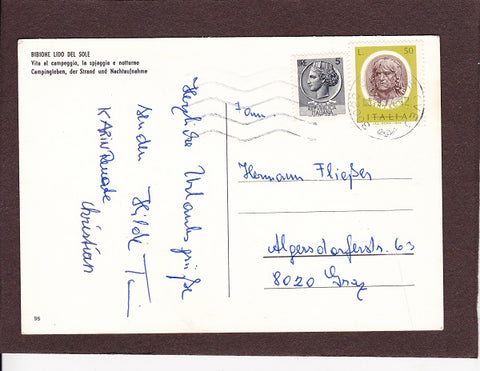 BIBIONE LIDO DEL SOLE
Vita al campeggio, la spiaggia e notturno
Campingleben, der Strand und Nachtaufnahme
Herzliche Urlaubsgrüße
senden Hilde
KARIN Renate
Christian
LIRE 5
ITALIANA
L. 50
ITALIA
Fam.
Hermann Fließer
Algersdorferstr. 63
8020 Graz